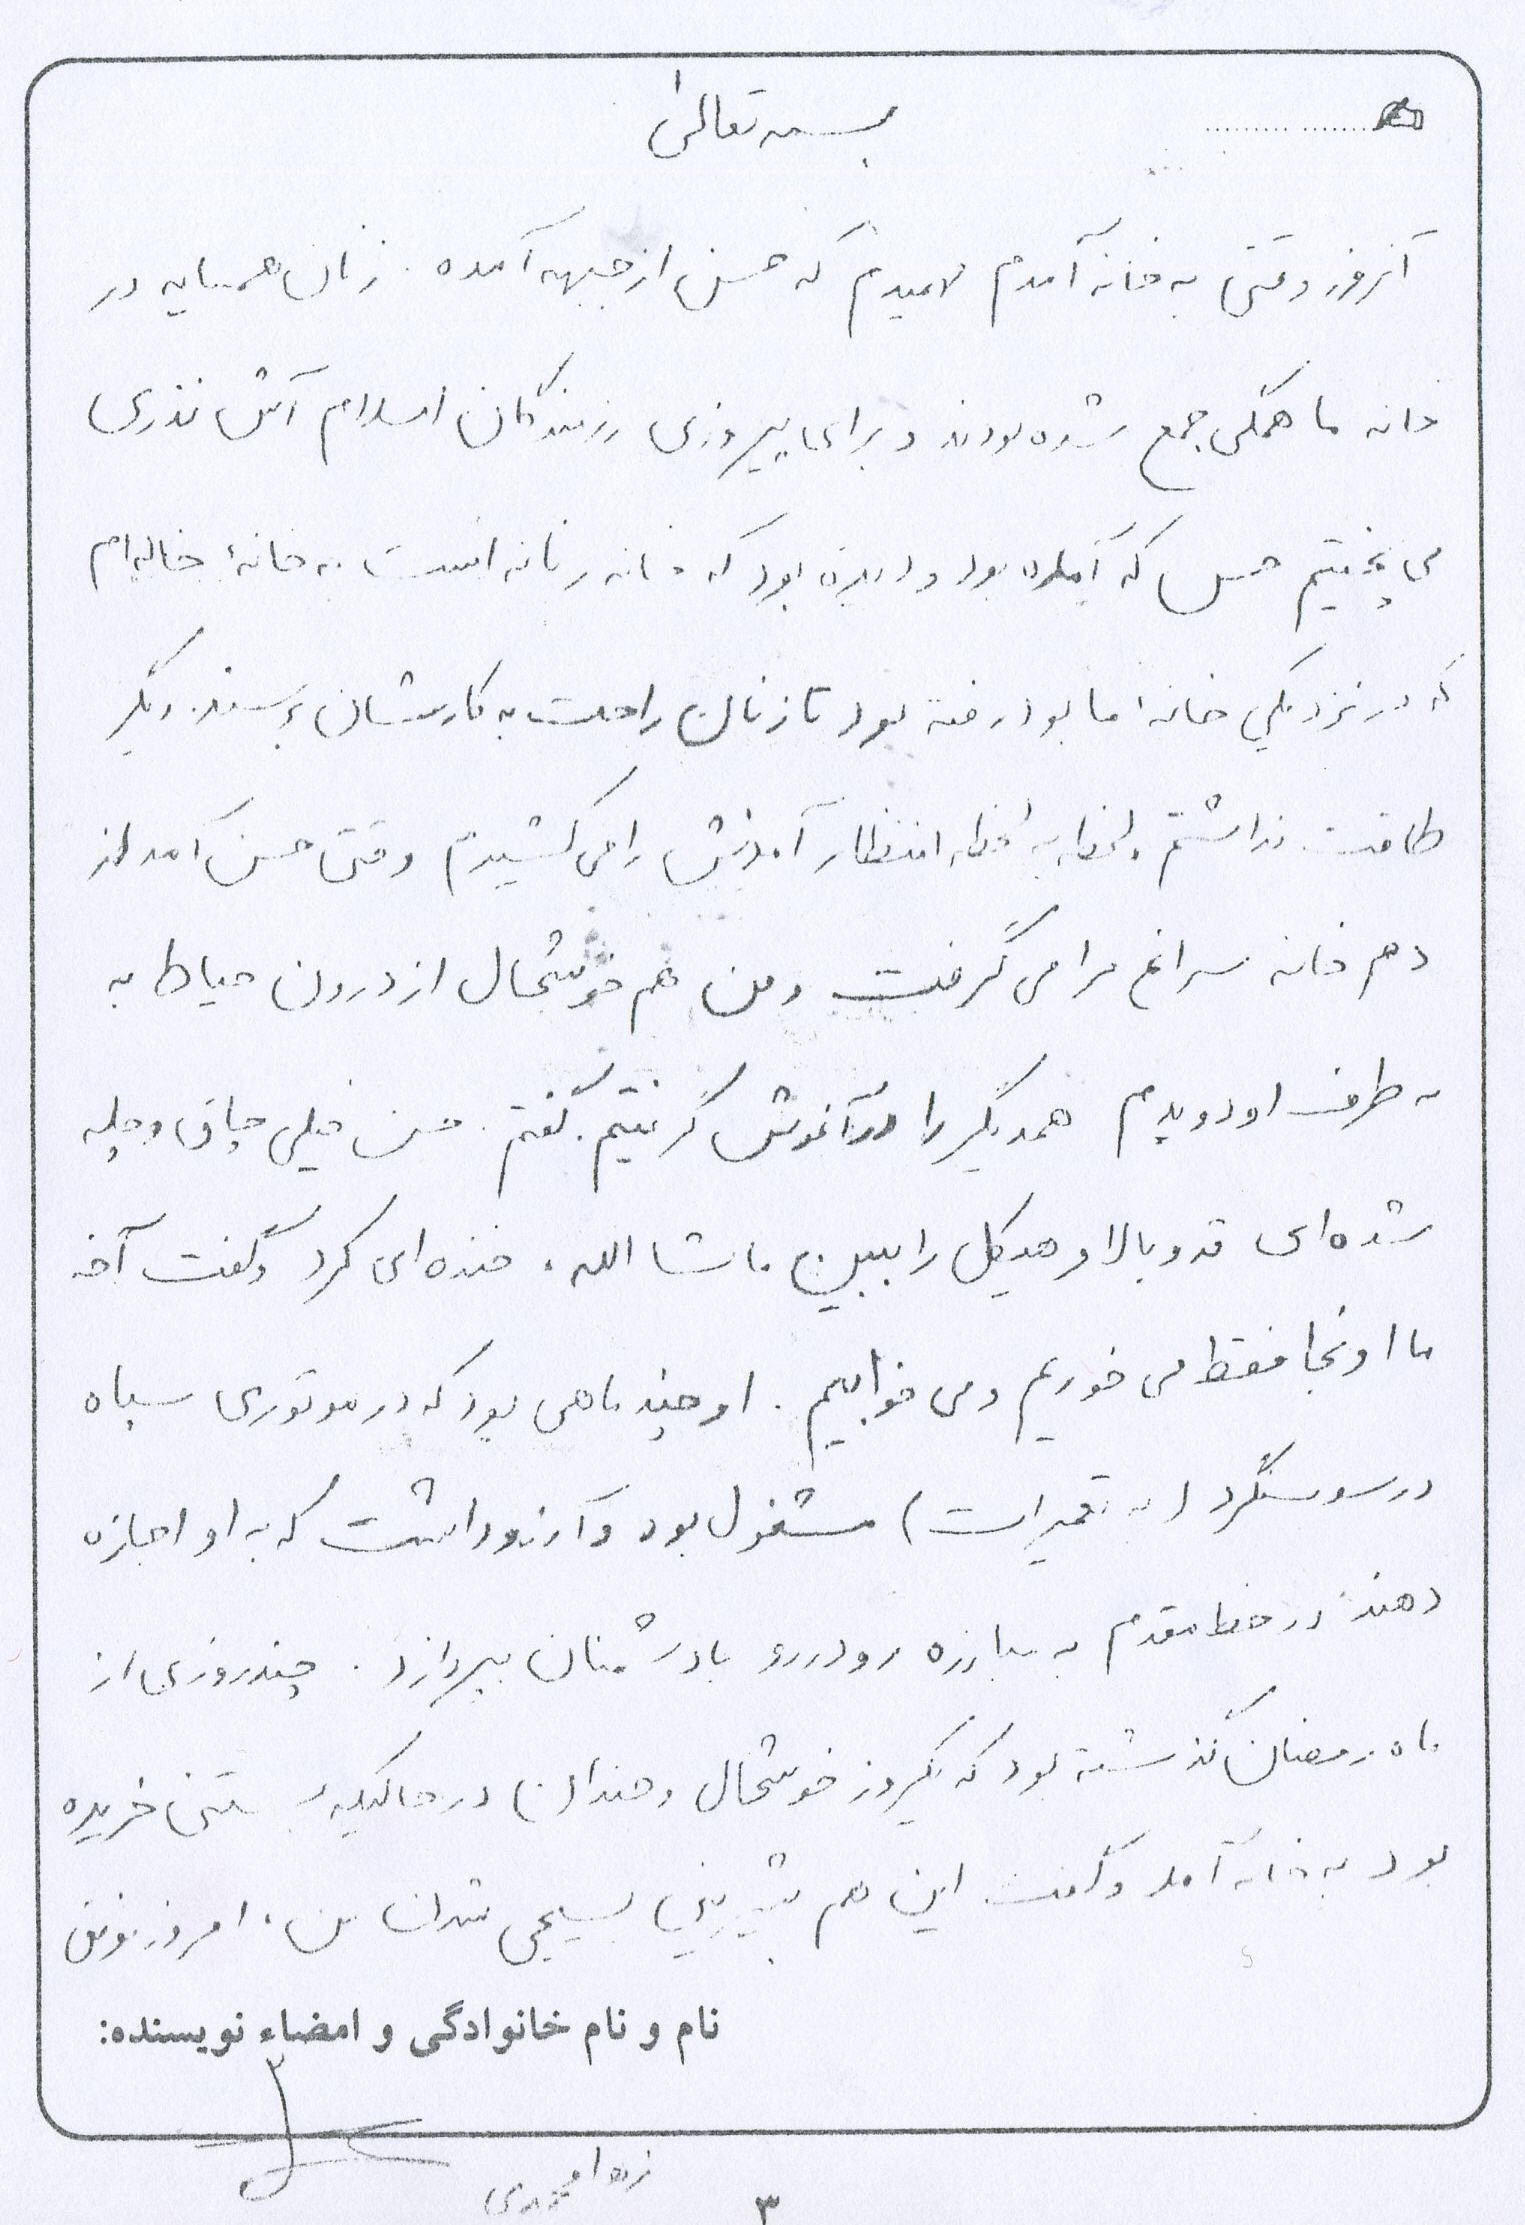 بسمه تعالی
آنروز وقتی به خانه آمدم فهمیدم که حسن از جبهه آمده. زنان همسایه در
خانه ما همگی جمع شده بودند و برای پیروزی رزمندگان اسلام آش نذری
می پختیم حسن که آمده بود و دیده بود که خانه زنانه است به خانهٔ خاله ام
که در نزدیکی خانهٔ ما بود رفته بود تا زنان راحت به کارشان برسند. دیگر
طاقت نداشتم. لحظه به لحظه انتظار آمدنش را می کشیدم وقتی حسن آمد از
دم خانه سراغ مرا می گرفت و من هم خوشحال از درون حیاط به
به طرف او دویدم همدیگر را در آغوش گرفتیم. گفتم. حسن خیلی چاق و چله
شده ای قد و بالا و هیکل را ببین ماشا الله. خنده ای کرد و گفت آخه
ما اونجا فقط می خوریم و می خوابیم. او چند ماهی بود که در موتوری سپاه
در سوسنگرد (به تعمیرات) مشغول بود و آرزو داشت که به او اجازه
دهند در خط مقدم به مبارزه رودررو با دشمنان بپردازد. چند روزی از
ماه رمضان گذشته بود که یکروز خوشحال و خندان در حالیکه بستنی خریده
بود به خانه آمد و گفت این هم شیرینی بسیجی شدن من، امروز
نام و نام خانوادگی و امضاء نویسنده:
محمدی
۳